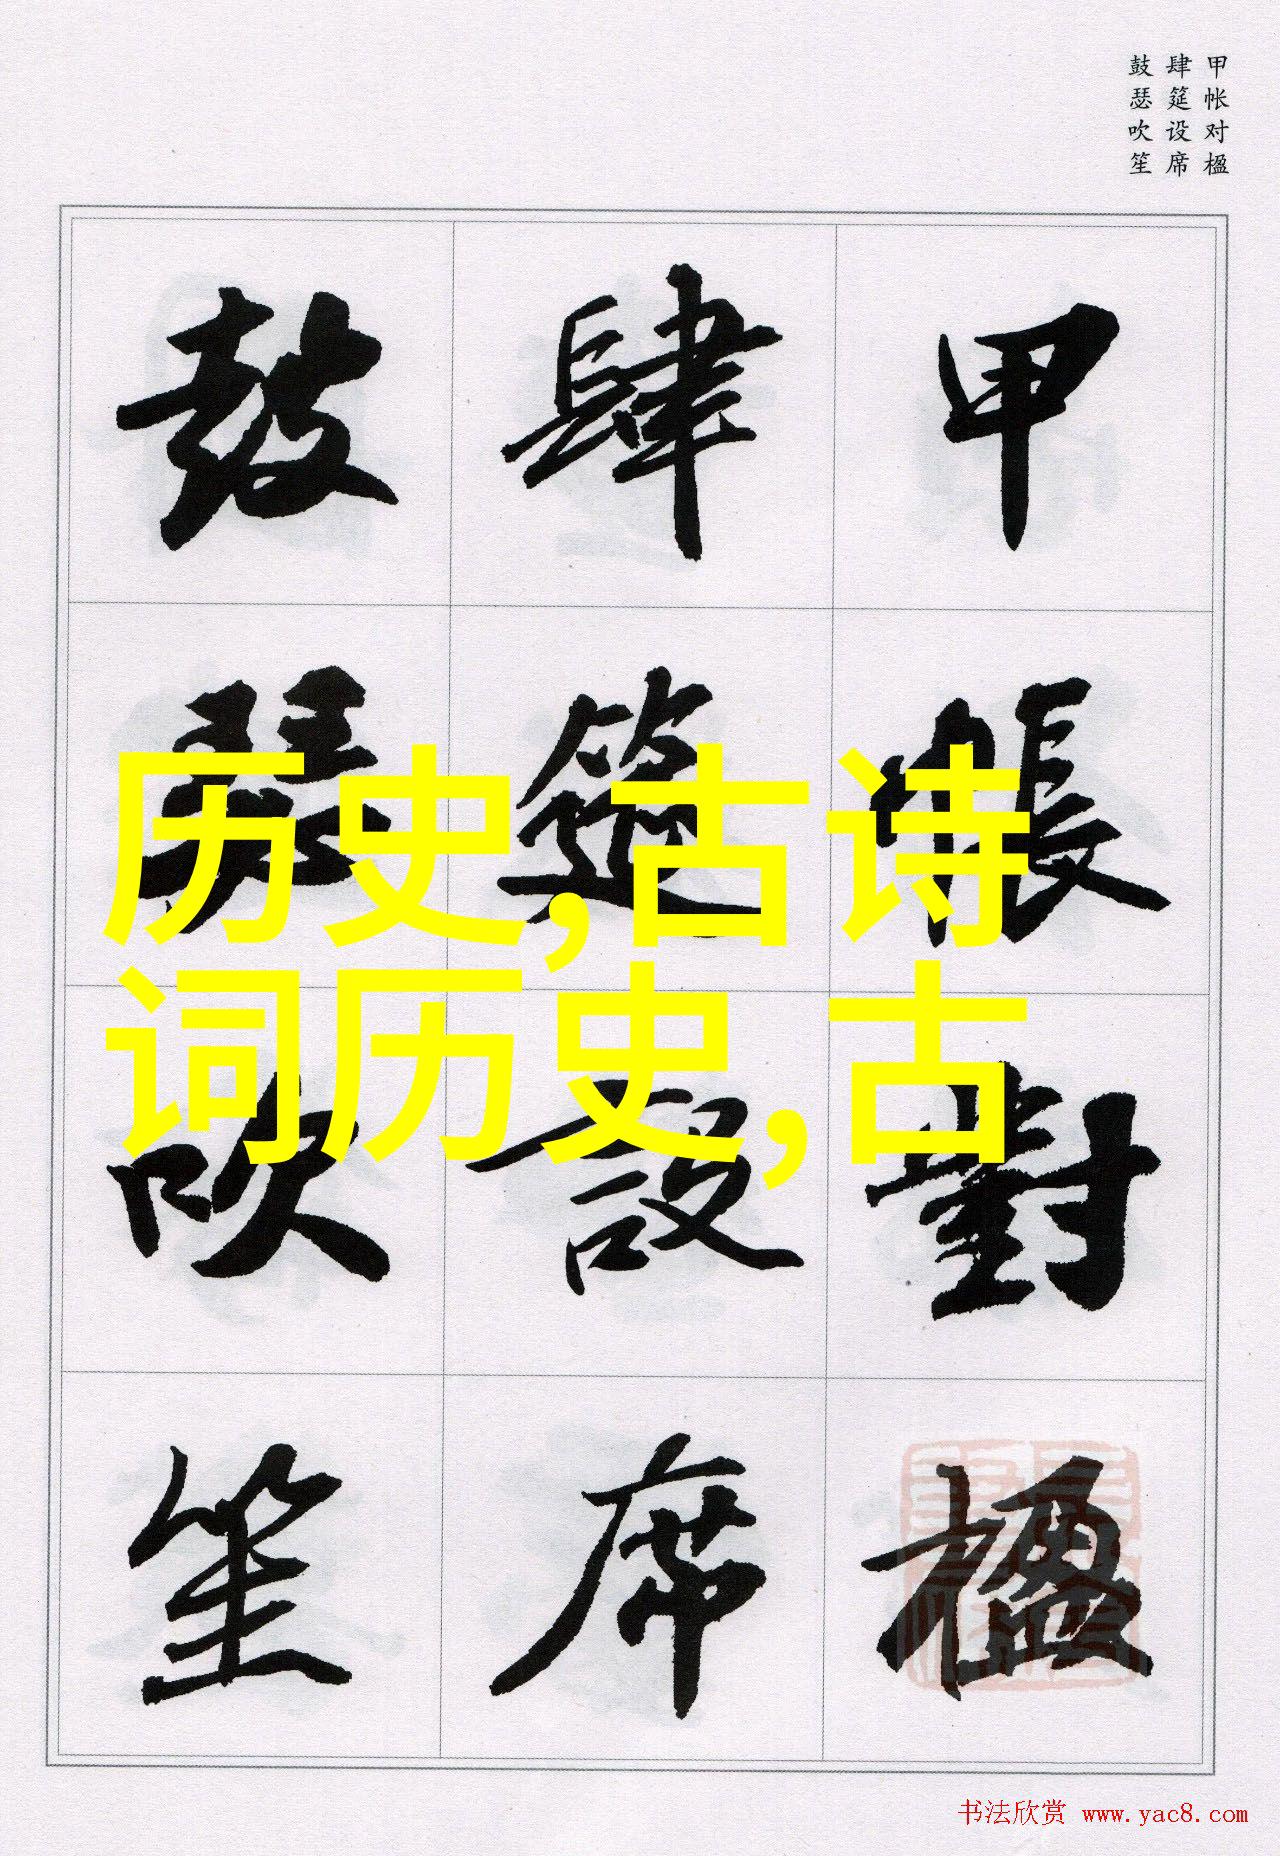 甲帐对楹
肆筵设席
鼓瑟吹笙
甲帳對楹
肆筵設席
鼓瑟吹笙
历史,古诗
词历史,古
书法欣赏 www.yac8.com